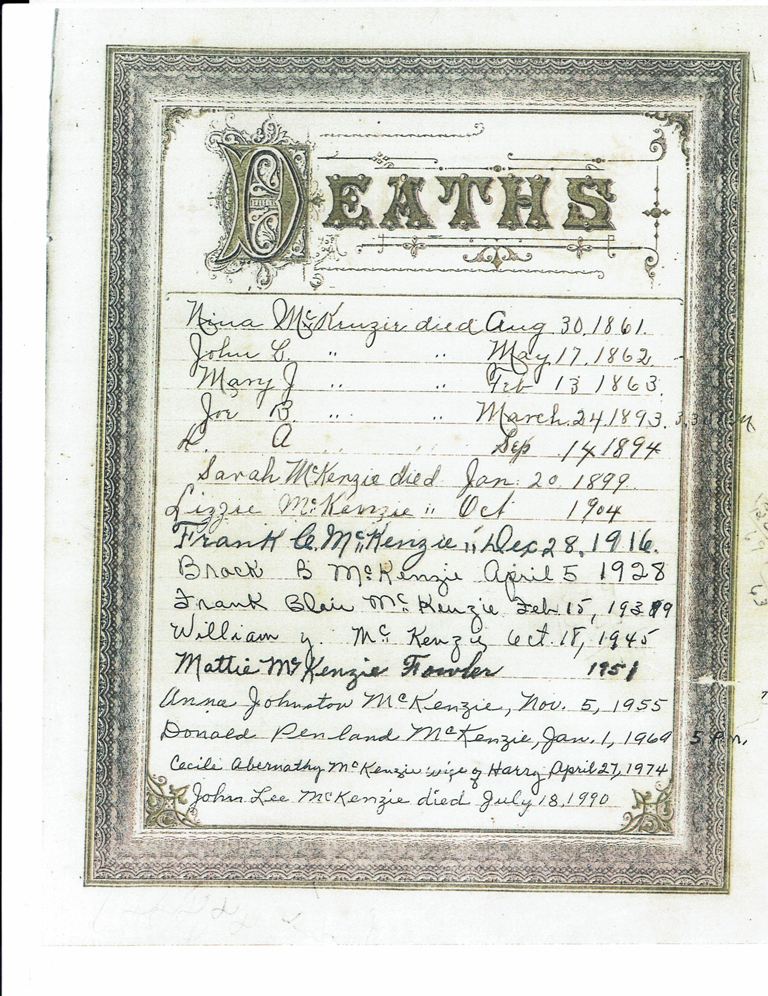 DEATHS
Nina McKenzie died Aug 30, 1861.
John C. " " May 17, 1862
Mary J " " Feb 13 1863.
Joe B. " " March 24 1893.
L. A " " Sep 14 1894
Sarah McKenzie died Jan. 20 1899
Lizzie McKenzie " Oct 1904
Frank C. McKenzie " Dec 28, 1916.
Brock B McKenzie April 5 1928
Frank Blair McKenzie Feb. 15, 1939
William y. McKenzie Oct. 18, 1945
Mattie McKenzie Fowler 1951
Anna Johnston McKenzie, Nov. 5, 1955
Donald Penland McKenzie, Jan. 1, 1969 5 P.m.
Cecile Abernathy McKenzie wife of Harry April 27, 1974
John Lee McKenzie died July 18, 1990